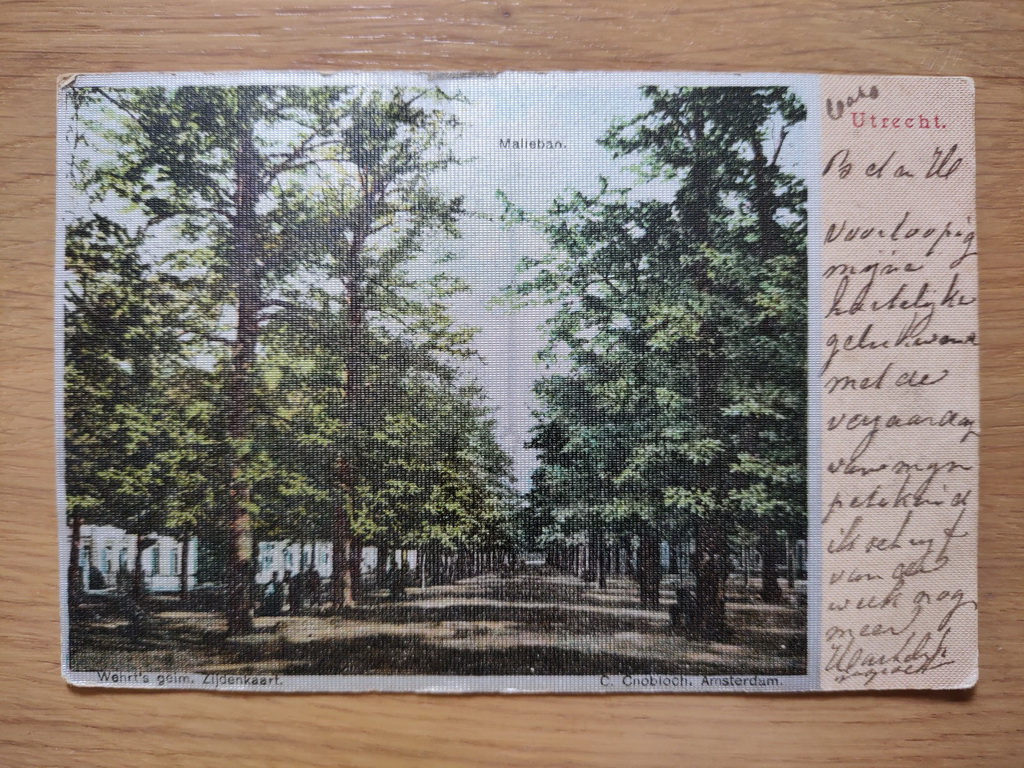 Malieban.
Wehrt's geim. Zijdenkaart.
C. Cnobloch. Amsterdam.
Utrecht.
voorloopig
mijne
hartelijke
gelukwensch
met de
verjaardag
van mijn
petekind
ik schrijf
van de
week nog
meer